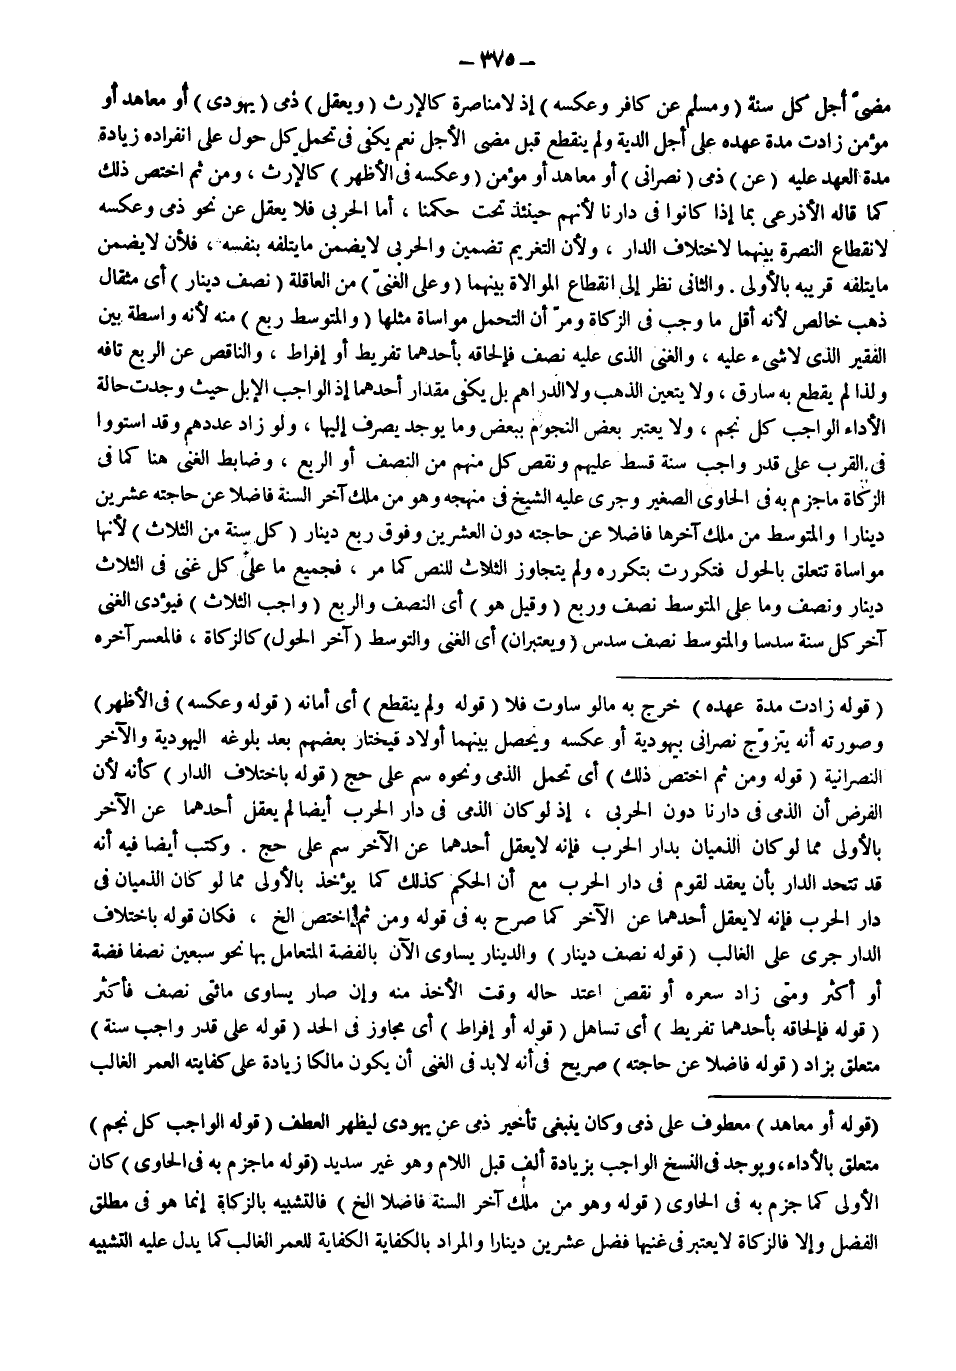 – ٣٧٥ –
مضىّ أجل كل سنة ( ومسلم عن كافر وعكسه ) إذ لامناصرة كالإرث ( ويعقل ) ذمى ( يهودى ) أو معاهد أو
مؤمن زادت مدة عهده على أجل الدية ولم ينقطع قبل مضى الأجل نعم يكفى فى تحمل كل حول على انفراده زيادة
مدة العهد عليه ( عن ) ذمى ( نصرانى ) أو معاهد أو مؤمن ( وعكسه فى الأظهر ) كالإرث ، ومن ثم اختص ذلك
كما قاله الأذرعى بما إذا كانوا فى دارنا لأنهم حينئذ تحت حكمنا ، أما الحربى فلا يعقل عن نحو ذمى وعكسه
لانقطاع النصرة بينهما لاختلاف الدار ، ولأن التغريم تضمين والحربى لايضمن مايتلفه بنفسه ، فلأن لايضمن
مايتلفه قريبه بالأولى . والثانى نظر إلى انقطاع الموالاة بينهما ( وعلى الغنىّ ) من العاقلة ( نصف دينار ) أى مثقال
ذهب خالص لأنه أقل ما وجب فى الزكاة ومرّ أن التحمل مواساة مثلها ( والمتوسط ربع ) منه لأنه واسطة بين
الفقير الذى لاشىء عليه ، والغنى الذى عليه نصف فإلحاقه بأحدهما تفريط أو إفراط ، والناقص عن الربع تافه
ولذا لم يقطع به سارق ، ولا يتعين الذهب ولا الدراهم بل يكفى مقدار أحدهما إذ الواجب الإبل حيث وجدت حالة
الأداء الواجب كل نجم ، ولا يعتبر بعض النجوم ببعض وما يوجد يصرف إليها ، ولو زاد عددهم وقد استووا
فى القرب على قدر واجب سنة قسط عليهم ونقص كل منهم من النصف أو الربع ، وضابط الغنى هنا كما فى
الزكاة ماجزم به فى الحاوى الصغير وجرى عليه الشيخ فى منهجه وهو من ملك آخر السنة فاضلا عن حاجته عشرين
دينارا والمتوسط من ملك آخرها فاضلا عن حاجته دون العشرين وفوق ربع دينار ( كل سنة من الثلاث ) لأنها
مواساة تتعلق بالحول فتكررت بتكرره ولم يتجاوز الثلاث للنص كما مر ، فجميع ما على كل غنى فى الثلاث
دينار ونصف وما على المتوسط نصف وربع ( وقيل هو ) أى النصف والربع ( واجب الثلاث ) فيؤدى الغنى
آخر كل سنة سدسا والمتوسط نصف سدس ( ويعتبران) أى الغنى والتوسط ( آخر الحول) كالزكاة ، فالمعسر آخره
( قوله زادت مدة عهده ) خرج به مالو ساوت فلا ( قوله ولم ينقطع ) أى أمانه ( قوله وعكسه ) فى الأظهر)
وصورته أنه يتزوّج نصرانى بيهودية أو عكسه ويحصل بينهما أولاد فيختار بعضهم بعد بلوغه اليهودية والآخر
النصرانية ( قوله ومن ثم اختص ذلك ) أى تحمل الذمى ونحوه سم على حج ( قوله باختلاف الدار ) كأنه لأن
الفرض أن الذمى فى دارنا دون الحربى ، إذ لو كان الذمى فى دار الحرب أيضا لم يعقل أحدهما عن الآخر
بالأولى مما لو كان الذميان بدار الحرب فإنه لايعقل أحدهما عن الآخر سم على حج . وكتب أيضا فيه أنه
قد تتحد الدار بأن يعقد لقوم فى دار الحرب مع أن الحكم كذلك كما يؤخذ بالأولى مما لو كان الذميان فى
دار الحرب فإنه لايعقل أحدهما عن الآخر كما صرح به فى قوله ومن ثم اختص الخ ، فكان قوله باختلاف
الدار جرى على الغالب ( قوله نصف دينار ) والدينار يساوى الآن بالفضة المتعامل بها نحو سبعين نصفا فضة
أو أكثر ومتى زاد سعره أو نقص اعتد حاله وقت الأخذ منه وإن صار يساوى مائتى نصف فأكثر
( قوله فإلحاقه بأحدهما تفريط ) أى تساهل ( قوله أو إفراط ) أى مجاوز فى الحد ( قوله على قدر واجب سنة )
متعلق بزاد ( قوله فاضلا عن حاجته ) صريح فى أنه لابد فى الغنى أن يكون مالكا زيادة على كفايته العمر الغالب
(قوله أو معاهد ) معطوف على ذمى وكان ينبغى تأخير ذمى عن يهودى ليظهر العطف ( قوله الواجب كل نجم )
متعلق بالأداء، ويوجد فى النسخ الواجب بزيادة ألف قبل اللام وهو غير سديد (قوله ماجزم به فى الحاوى ) كان
الأولى كما جزم به فى الحاوى ( قوله وهو من ملك آخر السنة فاضلا الخ ) فالتشبيه بالزكاة إنما هو فى مطلق
الفضل وإلا فالزكاة لايعتبر فى غنيها فضل عشرين دينارا والمراد بالكفاية الكفاية للعمر الغالب كما يدل عليه التشبيه